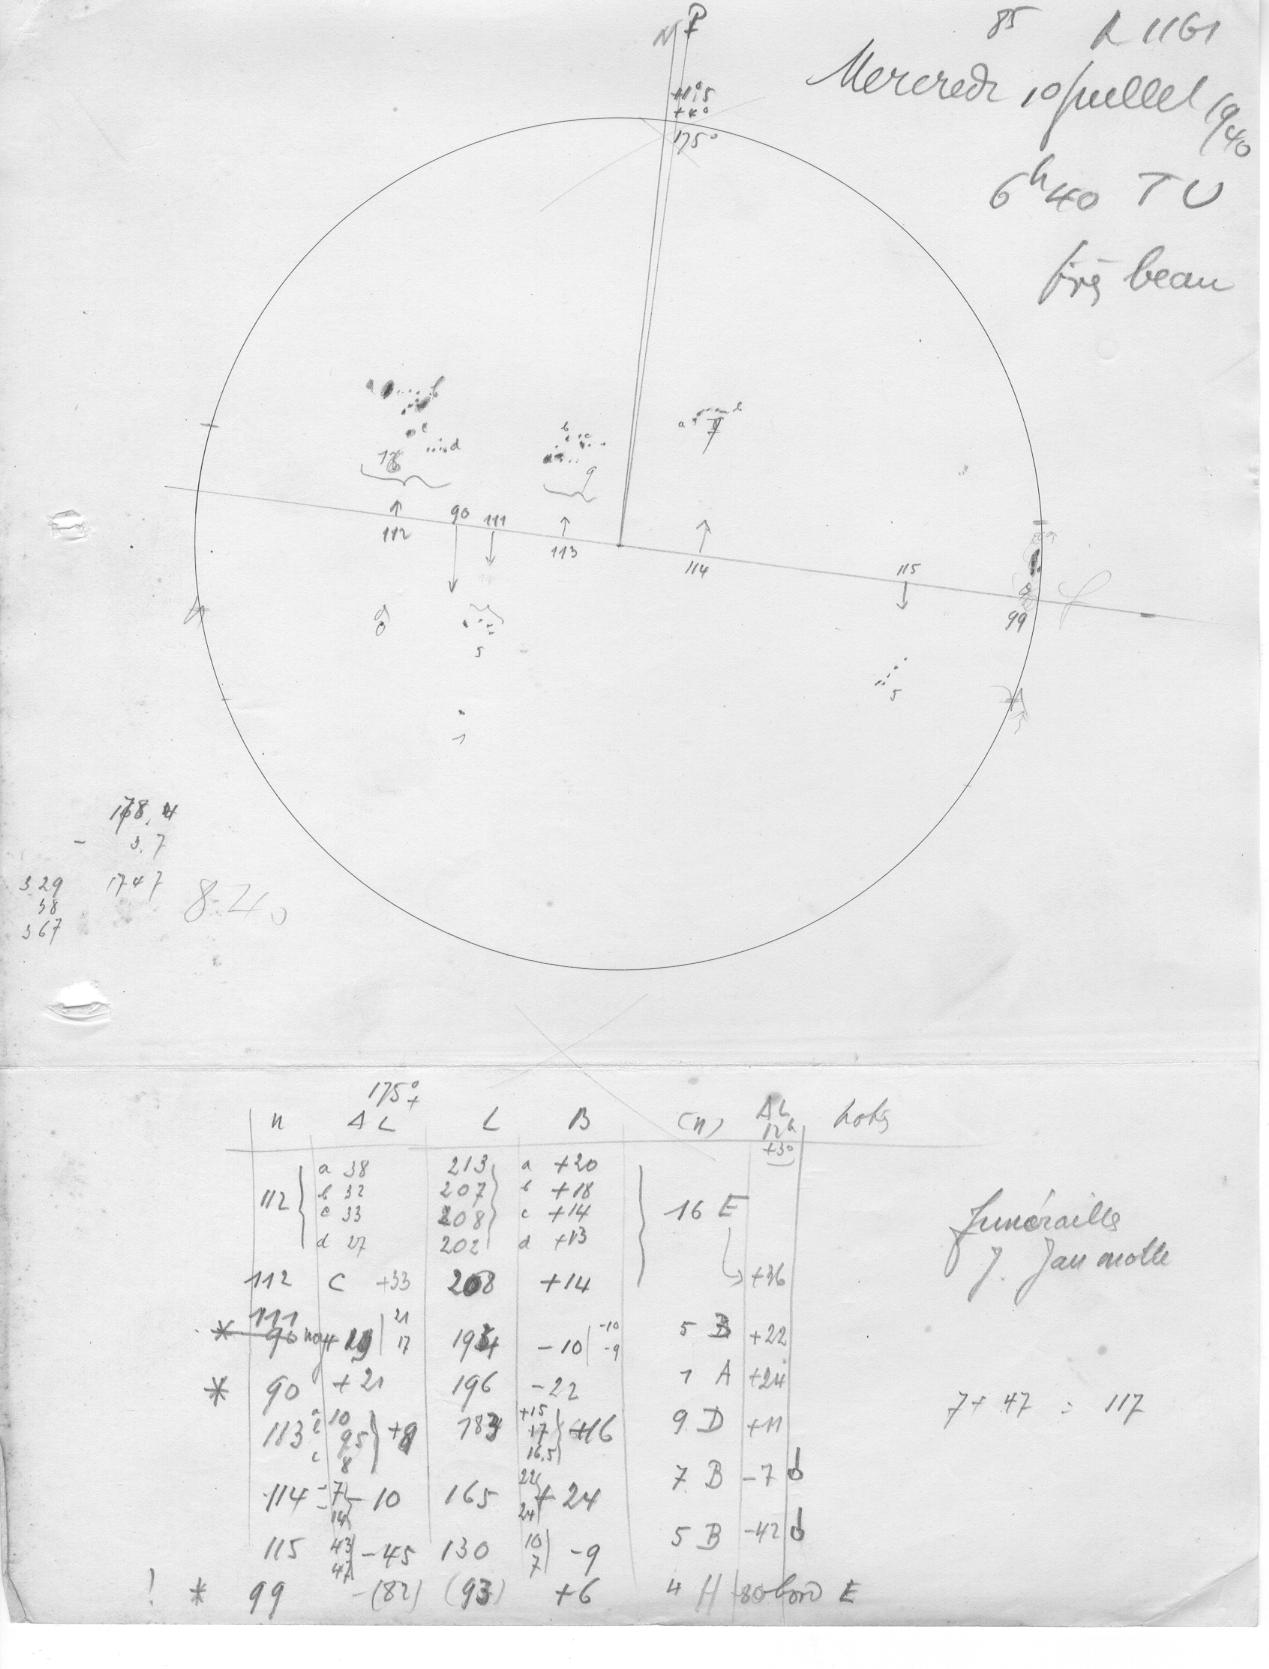 85 R 1161
Mercredi 10 juillet 1940
6h40 TU
très beau
N P
+11°5
+4°
175°
a b
c d
16
b c
a
9
a b
7
112
90
111
113
114
115
99
8
5
1
5
178.4
- 3.7
174 7
329
38
367
8.40
175° +
n ΔL L B (n) ΔL 12h +3° notes
112 a 38 213 a +20
b 32 207 b +18
c 33 208 c +14
d 27 202 d +13
16 E
112 c +33 208 +14 +36
111
* 90 + 19 21 17 194 -10 -10 -9 5 B +22
* 90 +21 196 -22 1 A +24
113 a 10 b 95 c 8 +9 183 +15 +17 16,5 +16 9 D +11
114 -7 -14 -10 165 22 24 +24 7 B -7
115 43 47 -45 130 10 7 -9 5 B -42
! * 99 -(82) (93) +6 4 H -80 bord E
Funérailles
J. Janmotte
7+ 47 = 117